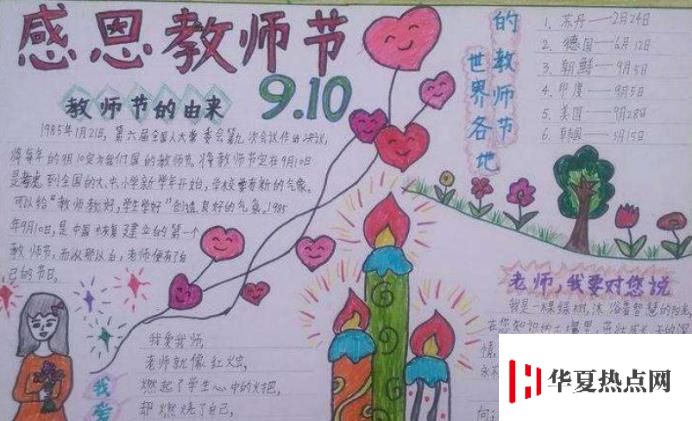 感恩教师节
9.10
教师节的由来
1985年1月21日,第六届全国人大常委会第九次会议作出决议,
将每年的9月10定为我们国的教师节,将教师节定在9月10日
是考虑到全国的大、中、小学新学年开始,学校要有新的气象。
可以给"教师教好,学生学好"创造良好的气象。1985
年9月10日,是中国恢复建立的第一个
教师节,而从那以后,老师便有了自
己的节日。
世界各地
的教师节
1. 苏丹——2月24日
2. 德国——6月12日
3. 朝鲜——9月5日
4. 印度——9月5日
5. 美国——9月28日
6. 韩国——5月15日
我爱
我爱我师,
老师就像红烛,
燃起了学生心中的火把,
却燃烧了自己,
老师,我要对您说
我是一棵棵树,沐浴着智慧的阳光,
在您知识的土壤里,茁壮成长
华夏热点网